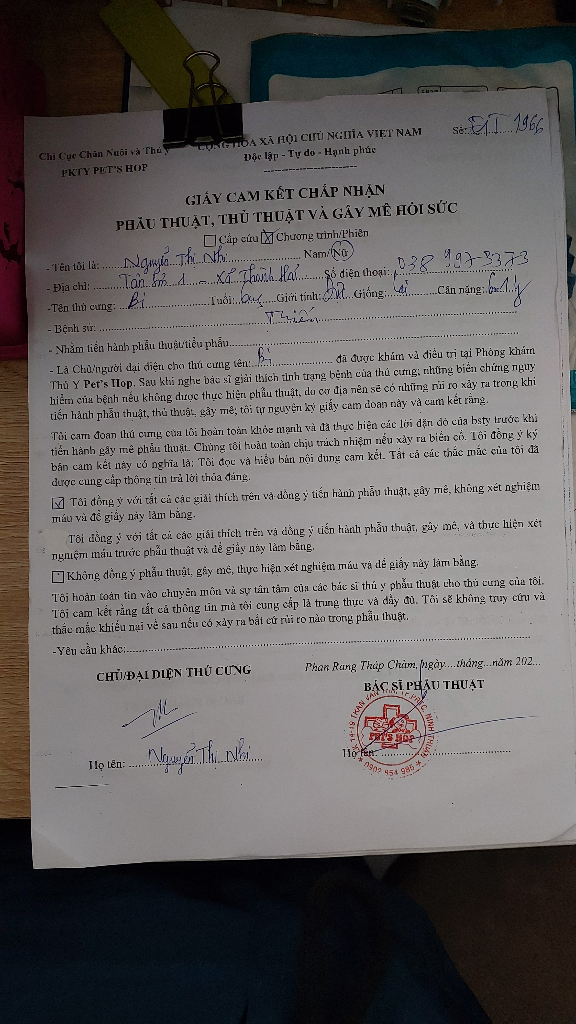 Chi Cục Chăn Nuôi và Thú y CỘNG HÒA XÃ HỘI CHỦ NGHĨA VIỆT NAM Số: 1966
PKTY PET'S HOP Độc lập - Tự do - Hạnh phúc
GIẤY CAM KẾT CHẤP NHẬN
PHẪU THUẬT, THỦ THUẬT VÀ GÂY MÊ HỒI SỨC
Cấp cứu Chương trình/Phiên
- Tên tôi là: Nguyễn Thị Nhi Nam/Nữ
- Địa chỉ: Xã Thanh Hải Số điện thoại: 038 997-3373
-Tên thú cưng: Bi Tuổi: Giới tính: Giống: Cân nặng:
- Bệnh sử: Thiến
- Nhằm tiến hành phẫu thuật/tiểu phẫu
- Là Chủ/người đại diện cho thú cưng tên: Bi đã được khám và điều trị tại Phòng khám
Thú Y Pet's Hop. Sau khi nghe bác sĩ giải thích tình trạng bệnh của thú cưng; những biến chứng nguy
hiểm của bệnh nếu không được thực hiện phẫu thuật, do cơ địa nên sẽ có những rủi ro xảy ra trong khi
tiến hành phẫu thuật, thủ thuật, gây mê; tôi tự nguyện ký giấy cam đoan này và cam kết rằng.
Tôi cam đoan thú cưng của tôi hoàn toàn khỏe mạnh và đã thực hiện các lời dặn dò của bsty trước khi
tiến hành gây mê phẫu thuật. Chúng tôi hoàn toàn chịu trách nhiệm nếu xảy ra biến cố. Tôi đồng ý ký
bản cam kết này có nghĩa là: Tôi đọc và hiểu bản nội dung cam kết. Tất cả các thắc mắc của tôi đã
được cung cấp thông tin trả lời thỏa đáng.
Tôi đồng ý với tất cả các giải thích trên và đồng ý tiến hành phẫu thuật, gây mê, không xét nghiệm
máu và để giấy này làm bằng.
Tôi đồng ý với tất cả các giải thích trên và đồng ý tiến hành phẫu thuật, gây mê, và thực hiện xét
nghiệm máu trước phẫu thuật và để giấy này làm bằng.
Không đồng ý phẫu thuật, gây mê, thực hiện xét nghiệm máu và để giấy này làm bằng.
Tôi hoàn toàn tin vào chuyên môn và sự tận tâm của các bác sĩ thú y phẫu thuật cho thú cưng của tôi.
Tôi cam kết rằng tất cả thông tin mà tôi cung cấp là trung thực và đầy đủ. Tôi sẽ không truy cứu và
thắc mắc khiếu nại về sau nếu có xảy ra bất cứ rủi ro nào trong phẫu thuật.
-Yêu cầu khác:
Phan Rang Tháp Chàm, ngày....tháng...năm 202...
CHỦ/ĐẠI DIỆN THÚ CƯNG BÁC SĨ PHẪU THUẬT
PET'S HOP
0902 954 985
Họ tên: Nguyễn Thị Nhi Họ tên: